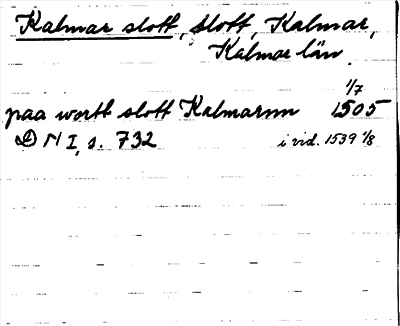 Kalmar slott, slott, Kalmar,
Kalmar län.
1/7
paa wortt slott Kalmarnn 1505
N I, s. 732 i vid. 1539 1/8